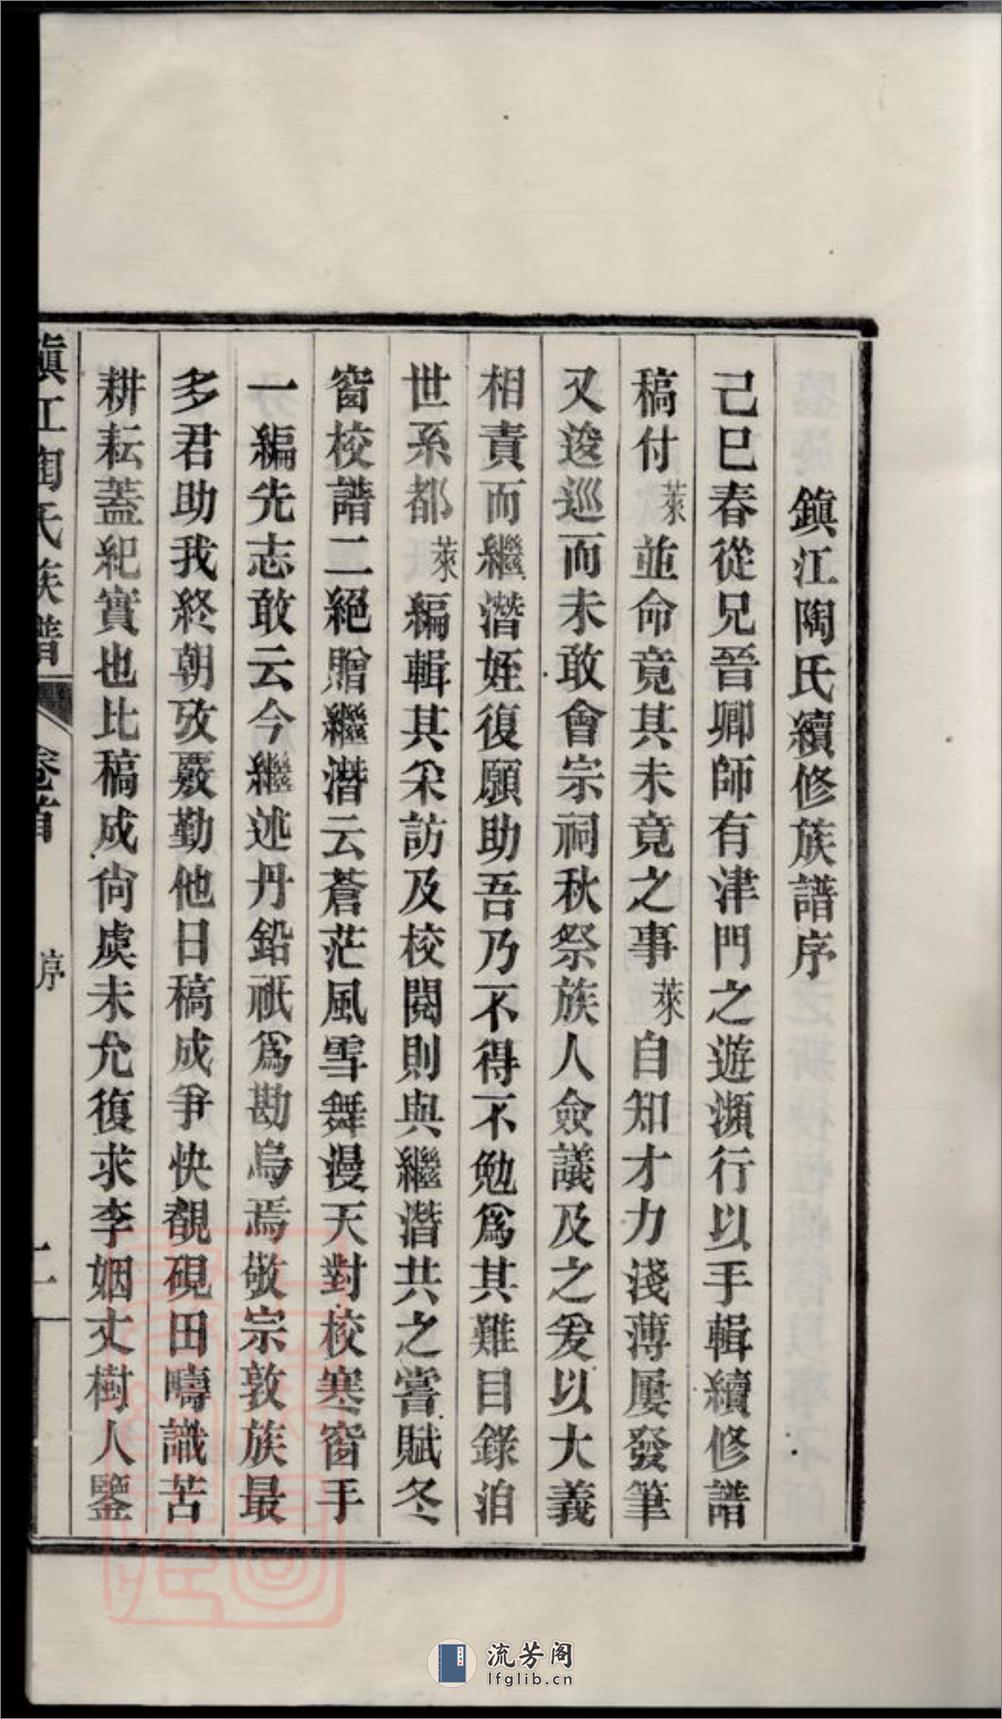 鎮江陶氏續修族譜序
己巳春從兄晉卿師有津門之遊瀕行以手輯續修譜
稿付萊並命竟其未竟之事萊自知才力淺薄屢發筆
又逡巡而未敢會宗祠秋祭族人僉議及之爰以大義
相責而繼潛姪復願助吾乃不得不勉爲其難目錄洎
世系都萊編輯其采訪及校閱則與繼潛共之嘗賦冬
窗校譜二絕贈繼潛云蒼茫風雪舞漫天對校寒窗手
一編先志敢云今繼述丹鉛祇爲勘烏焉敬宗敦族最
多君助我終朝攷覈勤他日稿成爭快覩硯田疇識苦
耕耘蓋紀實也比稿成尙虞未允復求李姻丈樹人鑒
鎮江陶氏族譜
卷首
序
流芳阁
lfglib.cn